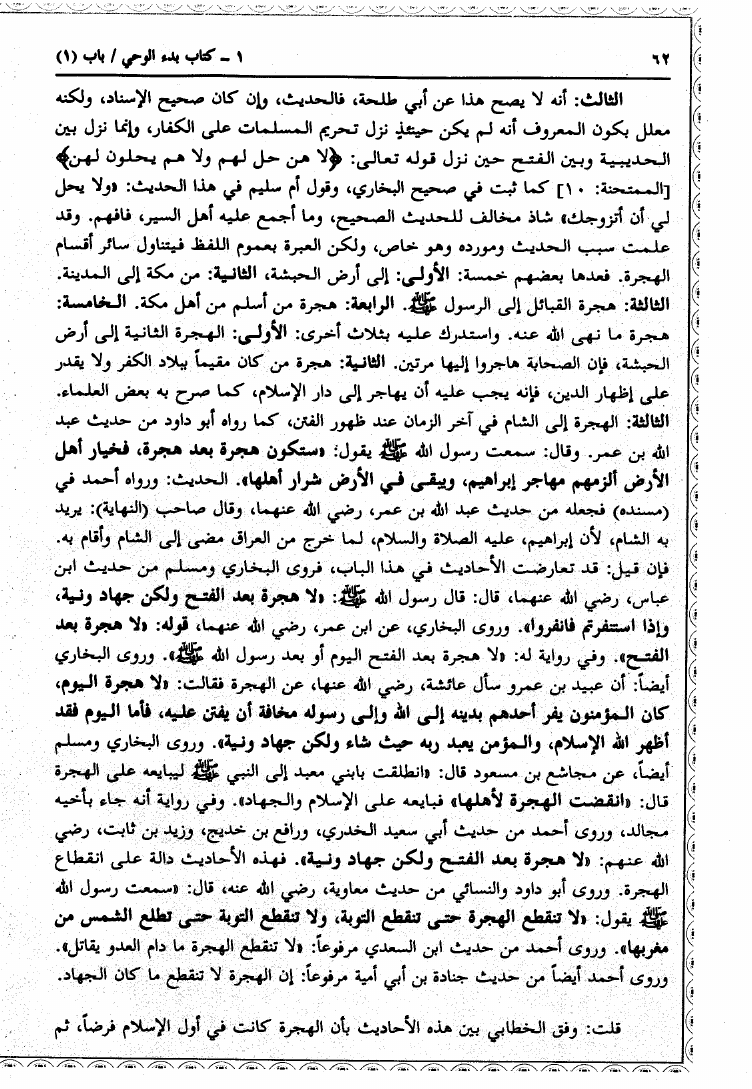 ٦٢
١ ـ كتاب بدء الوحي / باب (١)
الثالث: أنه لا يصح هذا عن أبي طلحة، فالحديث، وإن كان صحيح الإسناد، ولكنه
معلل بكون المعروف أنه لم يكن حينئذٍ نزل تحريم المسلمات على الكفار، وإنما نزل بين
الحديبية وبين الفتح حين نزل قوله تعالى: ﴿لا هن حل لهم ولا هم يحلون لهن﴾
[الممتحنة: ١٠] كما ثبت في صحيح البخاري، وقول أم سليم في هذا الحديث: «ولا يحل
لي أن أتزوجك» شاذ مخالف للحديث الصحيح، وما أجمع عليه أهل السير، فافهم. وقد
علمت سبب الحديث ومورده وهو خاص، ولكن العبرة بعموم اللفظ فيتناول سائر أقسام
الهجرة. فعدها بعضهم خمسة: الأولى: إلى أرض الحبشة، الثانية: من مكة إلى المدينة.
الثالثة: هجرة القبائل إلى الرسول ﷺ. الرابعة: هجرة من أسلم من أهل مكة. الخامسة:
هجرة ما نهى الله عنه. واستدرك عليه بثلاث أخرى: الأولى: الهجرة الثانية إلى أرض
الحبشة، فإن الصحابة هاجروا إليها مرتين. الثانية: هجرة من كان مقيماً ببلاد الكفر ولا يقدر
على إظهار الدين، فإنه يجب عليه أن يهاجر إلى دار الإسلام، كما صرح به بعض العلماء.
الثالثة: الهجرة إلى الشام في آخر الزمان عند ظهور الفتن، كما رواه أبو داود من حديث عبد
الله بن عمر. وقال: سمعت رسول الله ﷺ يقول: «ستكون هجرة بعد هجرة، فخيار أهل
الأرض ألزمهم مهاجر إبراهيم، ويبقى في الأرض شرار أهلها». الحديث: ورواه أحمد في
(مسنده) فجعله من حديث عبد الله بن عمر، رضي الله عنهما، وقال صاحب (النهاية): يريد
به الشام، لأن إبراهيم، عليه الصلاة والسلام، لما خرج من العراق مضى إلى الشام وأقام به.
فإن قيل: قد تعارضت الأحاديث في هذا الباب، فروى البخاري ومسلم من حديث ابن
عباس، رضي الله عنهما، قال: قال رسول الله ﷺ: «لا هجرة بعد الفتح ولكن جهاد ونية،
وإذا استنفرتم فانفروا». وروى البخاري، عن ابن عمر، رضي الله عنهما، قوله: «لا هجرة بعد
الفتح». وفي رواية له: «لا هجرة بعد الفتح اليوم أو بعد رسول الله ﷺ». وروى البخاري
أيضاً: أن عبيد بن عمرو سأل عائشة، رضي الله عنها، عن الهجرة فقالت: «لا هجرة اليوم،
كان المؤمنون يفر أحدهم بدينه إلى الله وإلى رسوله مخافة أن يفتن عليه، فأما اليوم فقد
أظهر الله الإسلام، والمؤمن يعبد ربه حيث شاء ولكن جهاد ونية». وروى البخاري ومسلم
أيضاً، عن مجاشع بن مسعود قال: «انطلقت بابني معبد إلى النبي ﷺ ليبايعه على الهجرة
قال: «انقضت الهجرة لأهلها» فبايعه على الإسلام والجهاد». وفي رواية أنه جاء بأخيه
مجالد، وروى أحمد من حديث أبي سعيد الخدري، ورافع بن خديج، وزيد بن ثابت، رضي
الله عنهم: «لا هجرة بعد الفتح ولكن جهاد ونية». فهذه الأحاديث دالة على انقطاع
الهجرة. وروى أبو داود والنسائي من حديث معاوية، رضي الله عنه، قال: «سمعت رسول الله
ﷺ يقول: «لا تنقطع الهجرة حتى تنقطع التوبة، ولا تنقطع التوبة حتى تطلع الشمس من
مغربها». وروى أحمد من حديث ابن السعدي مرفوعاً: «لا تنقطع الهجرة ما دام العدو يقاتل».
وروى أحمد أيضاً من حديث جنادة بن أبي أمية مرفوعاً: إن الهجرة لا تنقطع ما كان الجهاد.
قلت: وفق الخطابي بين هذه الأحاديث بأن الهجرة كانت في أول الإسلام فرضاً، ثم